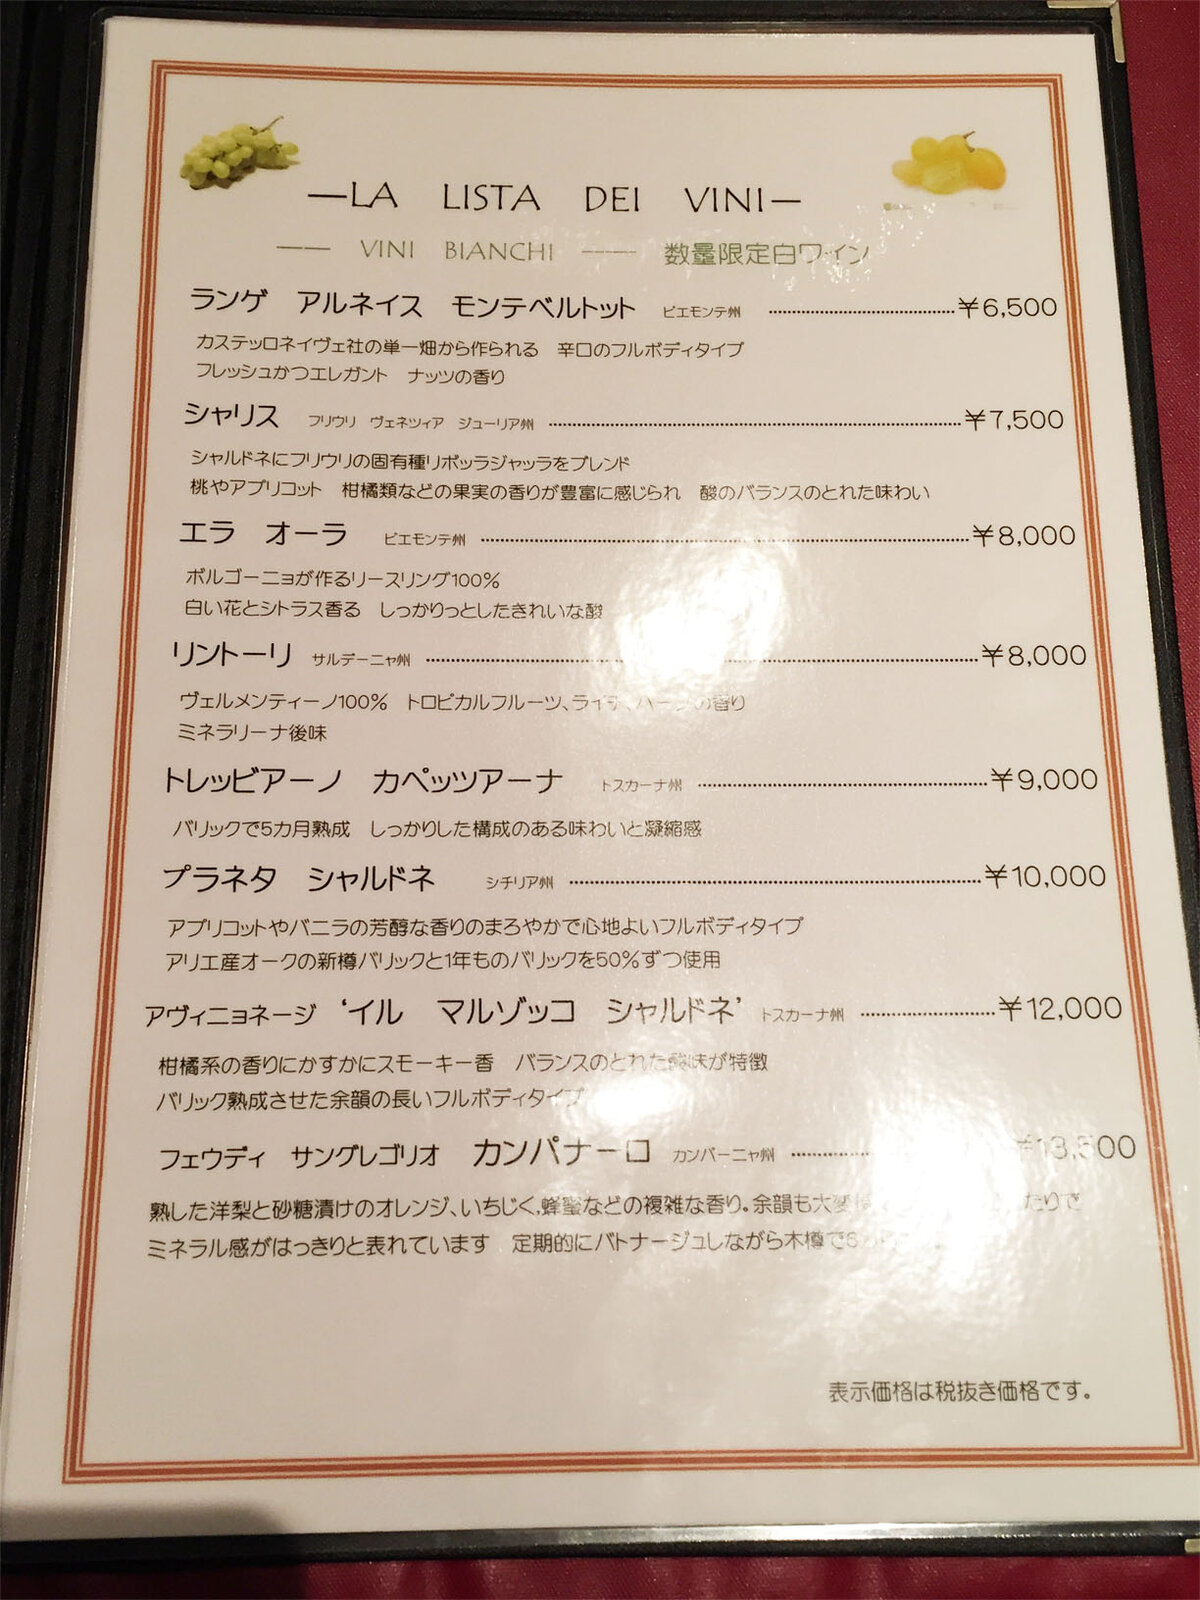 —LA LISTA DEI VINI—
—— VINI BIANCHI —— 数量限定白ワイン
ランゲ アルネイス モンテベルトット ピエモンテ州 ¥6,500
カステッロネイヴェ社の単一畑から作られる 辛口のフルボディタイプ
フレッシュかつエレガント ナッツの香り
シャリス フリウリ ヴェネツィア ジューリア州 ¥7,500
シャルドネにフリウリの固有種リボッラジャッラをブレンド
桃やアプリコット 柑橘類などの果実の香りが豊富に感じられ 酸のバランスのとれた味わい
エラ オーラ ピエモンテ州 ¥8,000
ボルゴーニョが作るリースリング100%
白い花とシトラス香る しっかりっとしたきれいな酸
リントーリ サルデーニャ州 ¥8,000
ヴェルメンティーノ100% トロピカルフルーツ、ライチ、ハーブの香り
ミネラリーナ後味
トレッビアーノ カペッツアーナ トスカーナ州 ¥9,000
バリックで5カ月熟成 しっかりした構成のある味わいと凝縮感
プラネタ シャルドネ シチリア州 ¥10,000
アプリコットやバニラの芳醇な香りのまろやかで心地よいフルボディタイプ
アリエ産オークの新樽バリックと1年ものバリックを50%ずつ使用
アヴィニョネージ ‘イル マルゾッコ シャルドネ’ トスカーナ州 ¥12,000
柑橘系の香りにかすかにスモーキー香 バランスのとれた酸味が特徴
バリック熟成させた余韻の長いフルボディタイプ
フェウディ サングレゴリオ カンパナーロ カンパーニャ州 ¥13,500
熟した洋梨と砂糖漬けのオレンジ、いちじく,蜂蜜などの複雑な香り。余韻も大変 たりで
ミネラル感がはっきりと表れています 定期的にバトナージュしながら木樽で
表示価格は税抜き価格です。